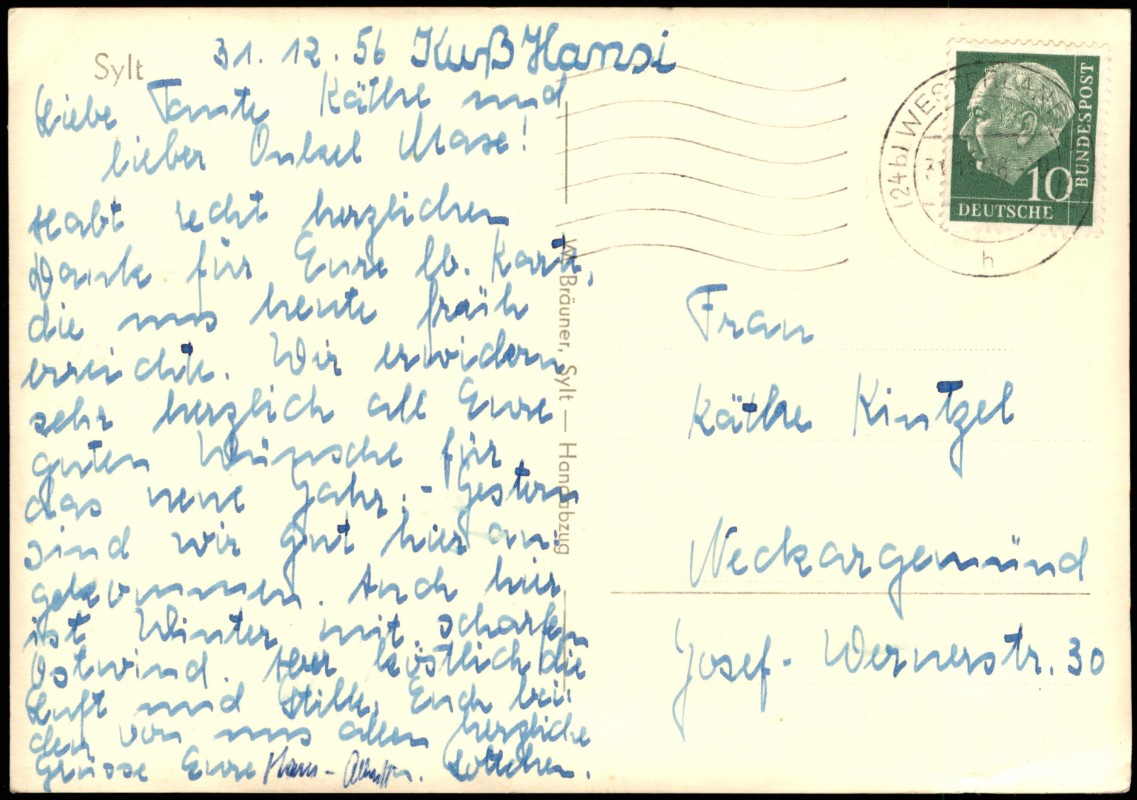 Sylt
31.12.56 Kuß Hansi
Liebe Tante Käthe und
lieber Onkel Mase!
Habt recht herzlichen
Dank für Eure lb. Karte,
die uns heute früh
erreichte. Wir erwidern
sehr herzlich all Eure
guten Wünsche für
das neue Jahr. - Gestern
sind wir gut hier an-
gekommen. Auch hier
ist Winter mit scharfem
Ostwind. Aber köstlich die
Luft und Stille. Euch bei-
den von uns allen herzliche
Grüsse Eure Hans- Lottchen.
W. Bräuner, Sylt — Handabzug
(24b) WESTERLAND
h
DEUTSCHE
BUNDESPOST
10
Frau
Käthe Kintzel
Neckargemünd
Josef-Wernerstr. 30